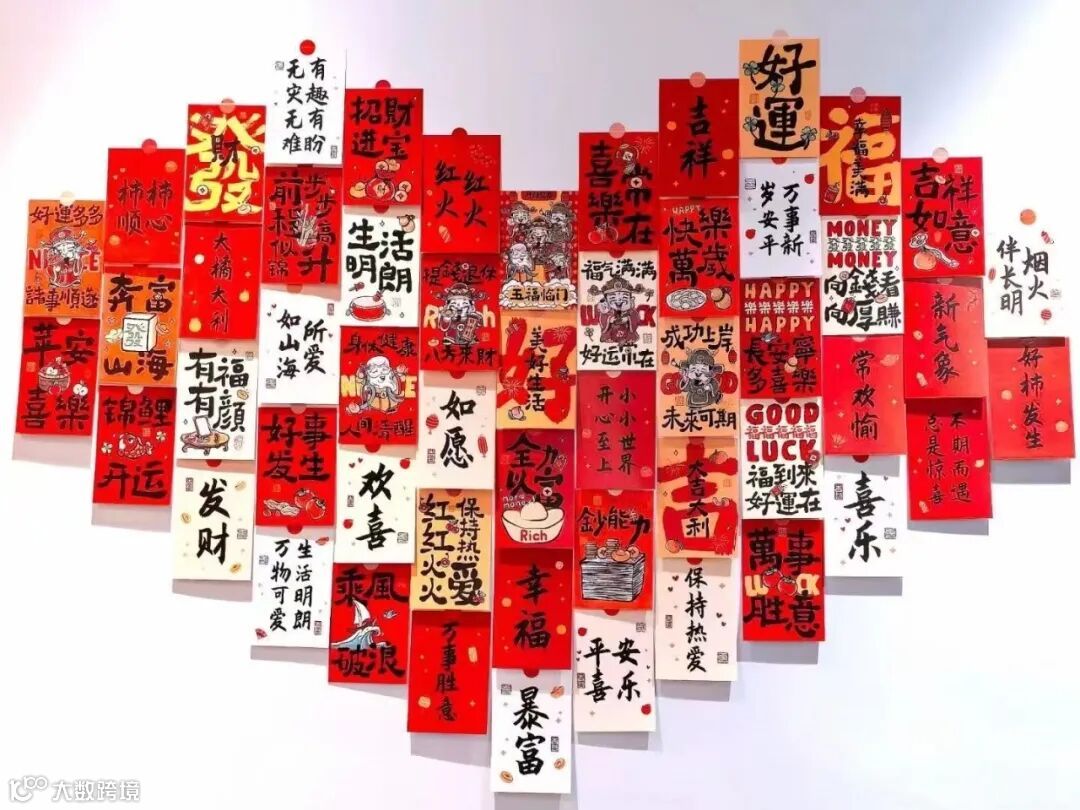 好運多多
NICE
諸事順遂
苹安
喜樂
柿柿
顺心
奔富
山海
锦鲤
开运
發財
大橘大利
有福
有顔
发财
有趣有盼
无灾无难
步步高升
前程似锦
所爱
如山海
好事
发生
生活明朗
万物可爱
招財
进宝
生活
明朗
身体健康
NICE
人间清醒
欢喜
乘風
破浪
红火
红火
提錢退休
Rich
八方来財
如愿
保持热爱
红红火火
万事胜意
五福临门
好
美好生活
全力以富
more money
Rich
幸福
暴富
喜樂
常在
福气满满
LUCK
好运常在
小小世界
开心至上
鈔能力
平安
喜乐
吉祥
HAPPY
快樂
萬歲
成功上岸
GOOD
未来可期
大吉大利
保持热爱
好運
万事新
岁安平
HAPPY
樂樂樂樂
HAPPY
長安寧
多喜樂
GOOD
福福福福福
LUCK
福到來
好運在
萬事
LUCK
胜意
福
幸福美满
MONEY
MONEY
向錢看
向厚賺
常欢愉
喜乐
吉祥
如意
新气象
不期而遇
总是惊喜
烟火
伴长明
好柿发生
大数跨境